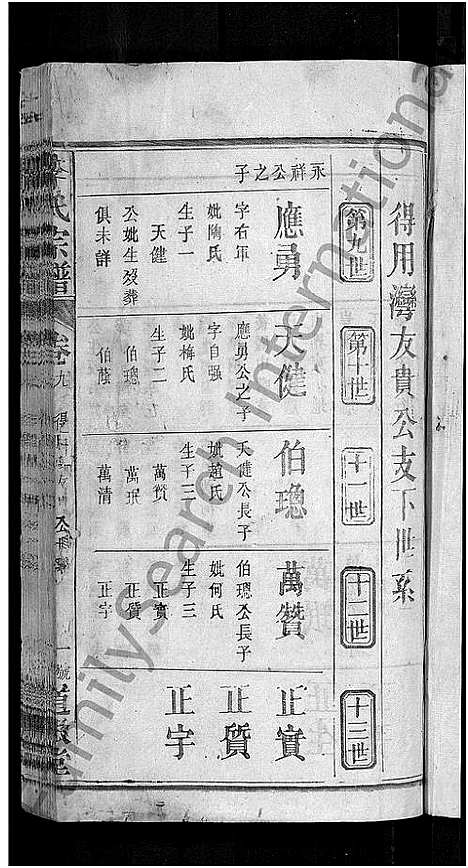 得用灣友貴公支下世系
第九世
第十世
十一世
十二世
十三世
永祥公之子
應勇
字右軍
妣陶氏
生子一
天健
公妣生歿葬
俱未詳
天健
應勇公之子
字自强
妣梅氏
生子二
伯璁
伯蔭
伯璁
天健公長子
妣趙氏
生子三
萬贊
萬珉
萬清
萬贊
伯璁公長子
妣何氏
生子三
正實
正質
正宇
正實
正質
正宇
氏宗譜
卷九
一號
FamilySearch International